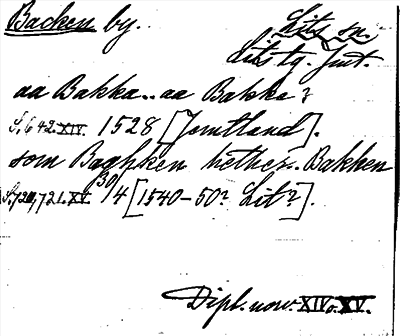 Backen by.
Lits sn.
Lits tg. Jmt.
aa Bakka.. aa Bakka?
S. 642. XIV. 1528 [Jemtland].
som Baghken hether.. Bakken
S. 720, 721. XV. 30/4 [1540-50? Lit?].
Dipl. norv. XIV o. XV.